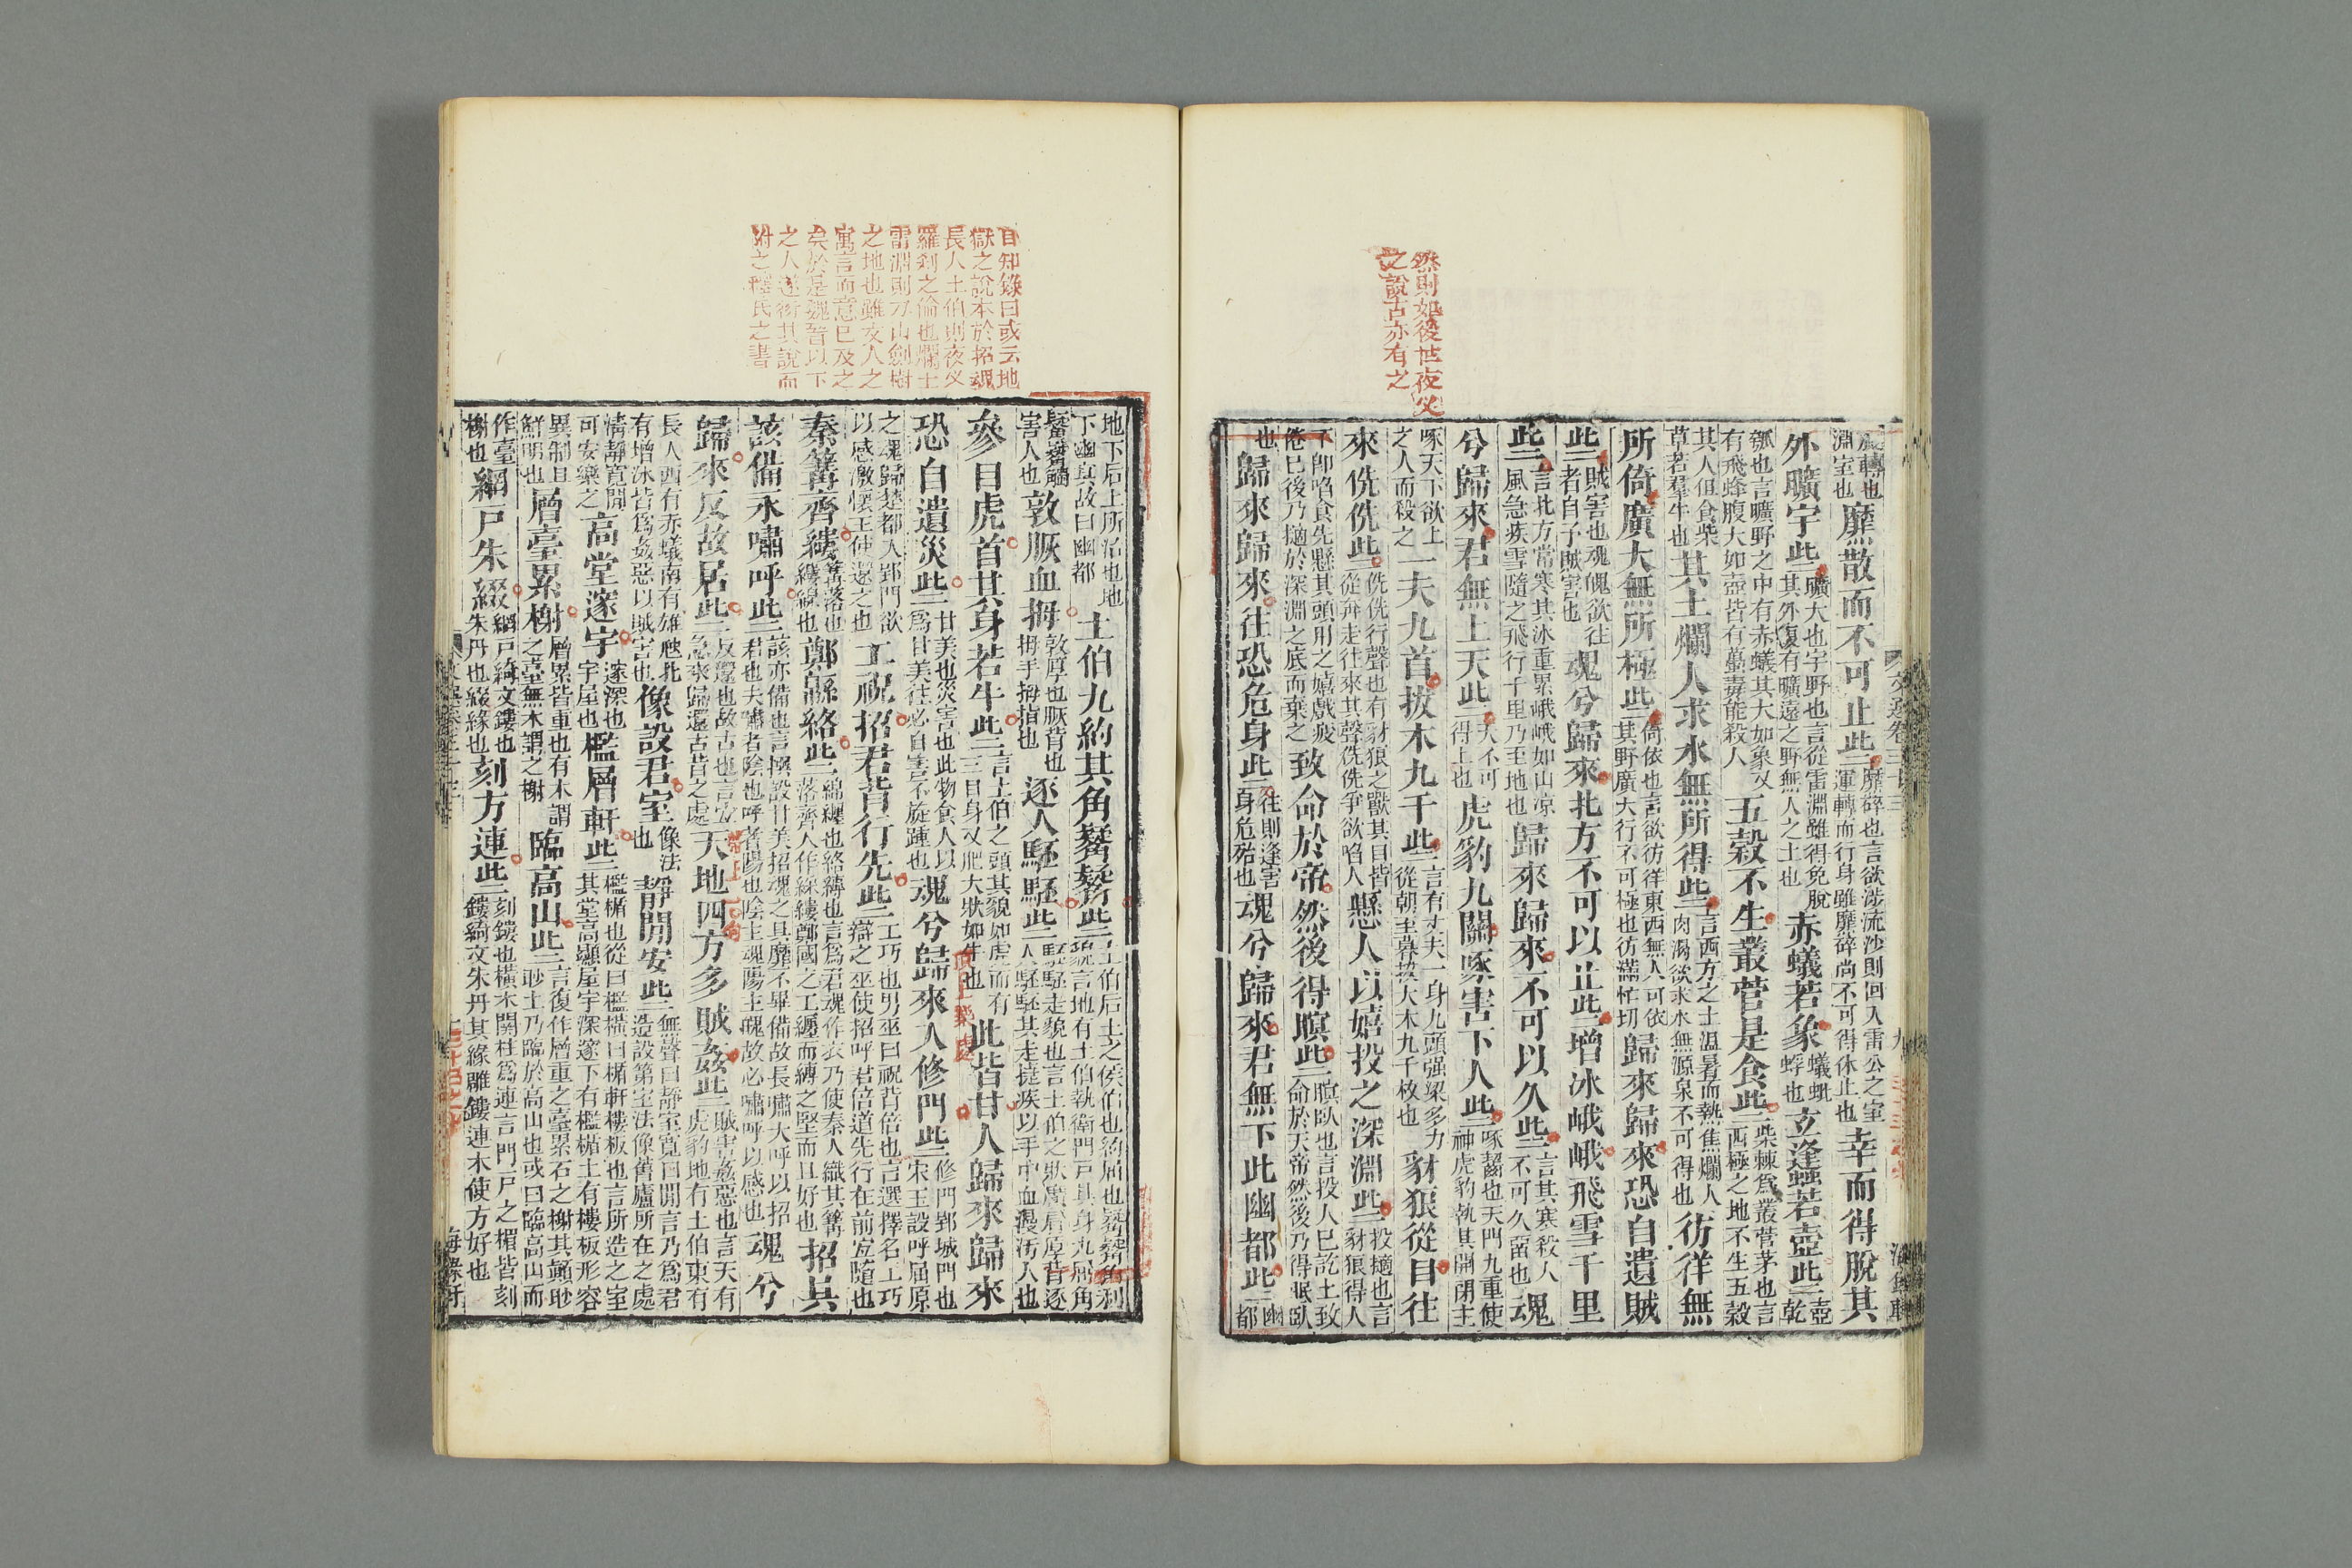 然則如後世夜父
之說古亦有之
旋轉也
淵室也
靡散而不可止些
靡碎也言欲涉流沙則回入雷公之室
運轉而行身雖靡碎尚不可得休止也
幸而得脫其
外曠宇些
曠大也宇野也言從雷淵雖得免脫
其外復有曠遠之野無人之土也
赤蟻若象
蟻蚍
蜉也
玄蠭若壺些
壺
乾
瓠也言曠野之中有赤蟻其大如象又
有飛蜂腹大如壺皆有蠚毒能殺人
五穀不生叢菅是食些
柴棘為叢菅茅也言
西極之地不生五穀
其人但食柴
草若羣牛也
其土爛人求水無所得些
言西方之土溫暑而熱焦爛人
肉渴欲求水無源泉不可得也
彷徉無
所倚廣大無所極些
倚依也言欲彷徉東西無人可依
其野廣大行不可極也彷滿忙切
歸來歸來恐自遺賊
些
賊害也魂魄欲往
者自予賊害也
魂兮歸來北方不可以止些增冰峨峨飛雪千里
些
言北方常寒其冰重累峨峨如山凉
風急疾雪隨之飛行千里乃至地也
歸來歸來不可以久些
言其寒殺人
不可久留也
魂
兮歸來君無上天些
天不可
得上也
虎豹九關啄害下人些
啄齧也天門九重使
神虎豹執其關閉主
啄天下欲上
之人而殺之
一夫九首拔木九千些
言有丈夫一身九頭强梁多力
從朝至暮拔大木九千枚也
豺狼從目往
來侁侁些
侁侁行聲也有豺狼之獸其目皆
從奔走往來其聲侁侁爭欲啗人
懸人以嬉投之深淵些
投擿也言
豺狼得人
不即啗食先懸其頭用之嬉戲疲
倦已後乃擿於深淵之底而棄之
致命於帝然後得瞑些
瞑臥也言投人已訖上致
命於天帝然後乃得眠臥
也
歸來歸來往恐危身些
往則逢害
身危殆也
魂兮歸來君無下此幽都些
幽
都
日知錄曰或云地
獄之說本於招魂
長人土伯則夜叉
羅刹之倫也爛土
雷淵則刀山劍樹
之地也雖文人之
寓言而意已及之
矣於是魏晉以下
之人遂衍其說而
附之釋氏之書
地下后土所治也地
下幽冥故曰幽都
土伯九約其角觺觺些
土伯后土之侯伯也約屈也觺觺角利
貌言地有土伯執衛門戶其身九屈角
觺觺觸
害人也
敦脄血拇
敦厚也脄背也
拇手拇指也
逐人駓駓些
駓駓走貌也言土伯之狀廣肩厚背逐
人駓駓其走捷疾以手中血漫汚人也
參目虎首其身若牛些
言土伯之頭其貌如虎而有
三目身又肥大狀如牛也
此皆甘人歸來歸來
恐自遺災些
甘美也災害也此物食人以
為甘美往必自害不旋踵也
魂兮歸來入修門些
修門郢城門也
宋玉設呼屈原
之魂歸楚都入郢門欲
以感激懷王使還之也
工祝招君背行先些
工巧也男巫曰祝背倍也言選擇名工巧
辯之巫使招呼君倍道先行在前宜隨也
秦篝齊縷
篝落也
縷綫也
鄭緜絡些
綿纏也絡縛也言為君魂作衣乃使秦人織其篝
落齊人作綵縷鄭國之工纏而縛之堅而且好也
招具
該備永嘯呼些
該亦備也言撰設甘美招魂之具靡不畢備故長嘯大呼以招
君也夫嘯者陰也呼者陽也陰主魂陽主魄故必嘯呼以感也
魂兮
歸來反故居些
反還也故古也言宜
急來歸還古昔之處
天地四方多賊姦些
賊害姦惡也言天有
虎豹地有土伯東有
長人西有赤蟻南有雄虺北
有增冰皆為姦惡以賊害也
像設君室
像法
也
靜閒安些
無聲曰靜室寬曰閒言乃為君
造設第室法像舊廬所在之處
清靜寬閒
可安樂之
高堂邃宇
邃深也
宇屋也
檻層軒些
檻楯也從曰檻橫曰楯軒樓板也言所造之室
其堂高顯屋宇深邃下有檻楯上有樓板形容
異制且
鮮明也
層臺累榭
層累皆重也有木謂
之臺無木謂之榭
臨高山些
言復作層重之臺累石之榭其顛眇
眇上乃臨於高山也或曰臨高山而
作臺
榭也
網戶朱綴
網戶綺文鏤也
朱丹也綴緣也
刻方連些
刻鏤也橫木關柱為連言門戶之楣皆刻
鏤綺文朱丹其緣雕鏤連木使方好也